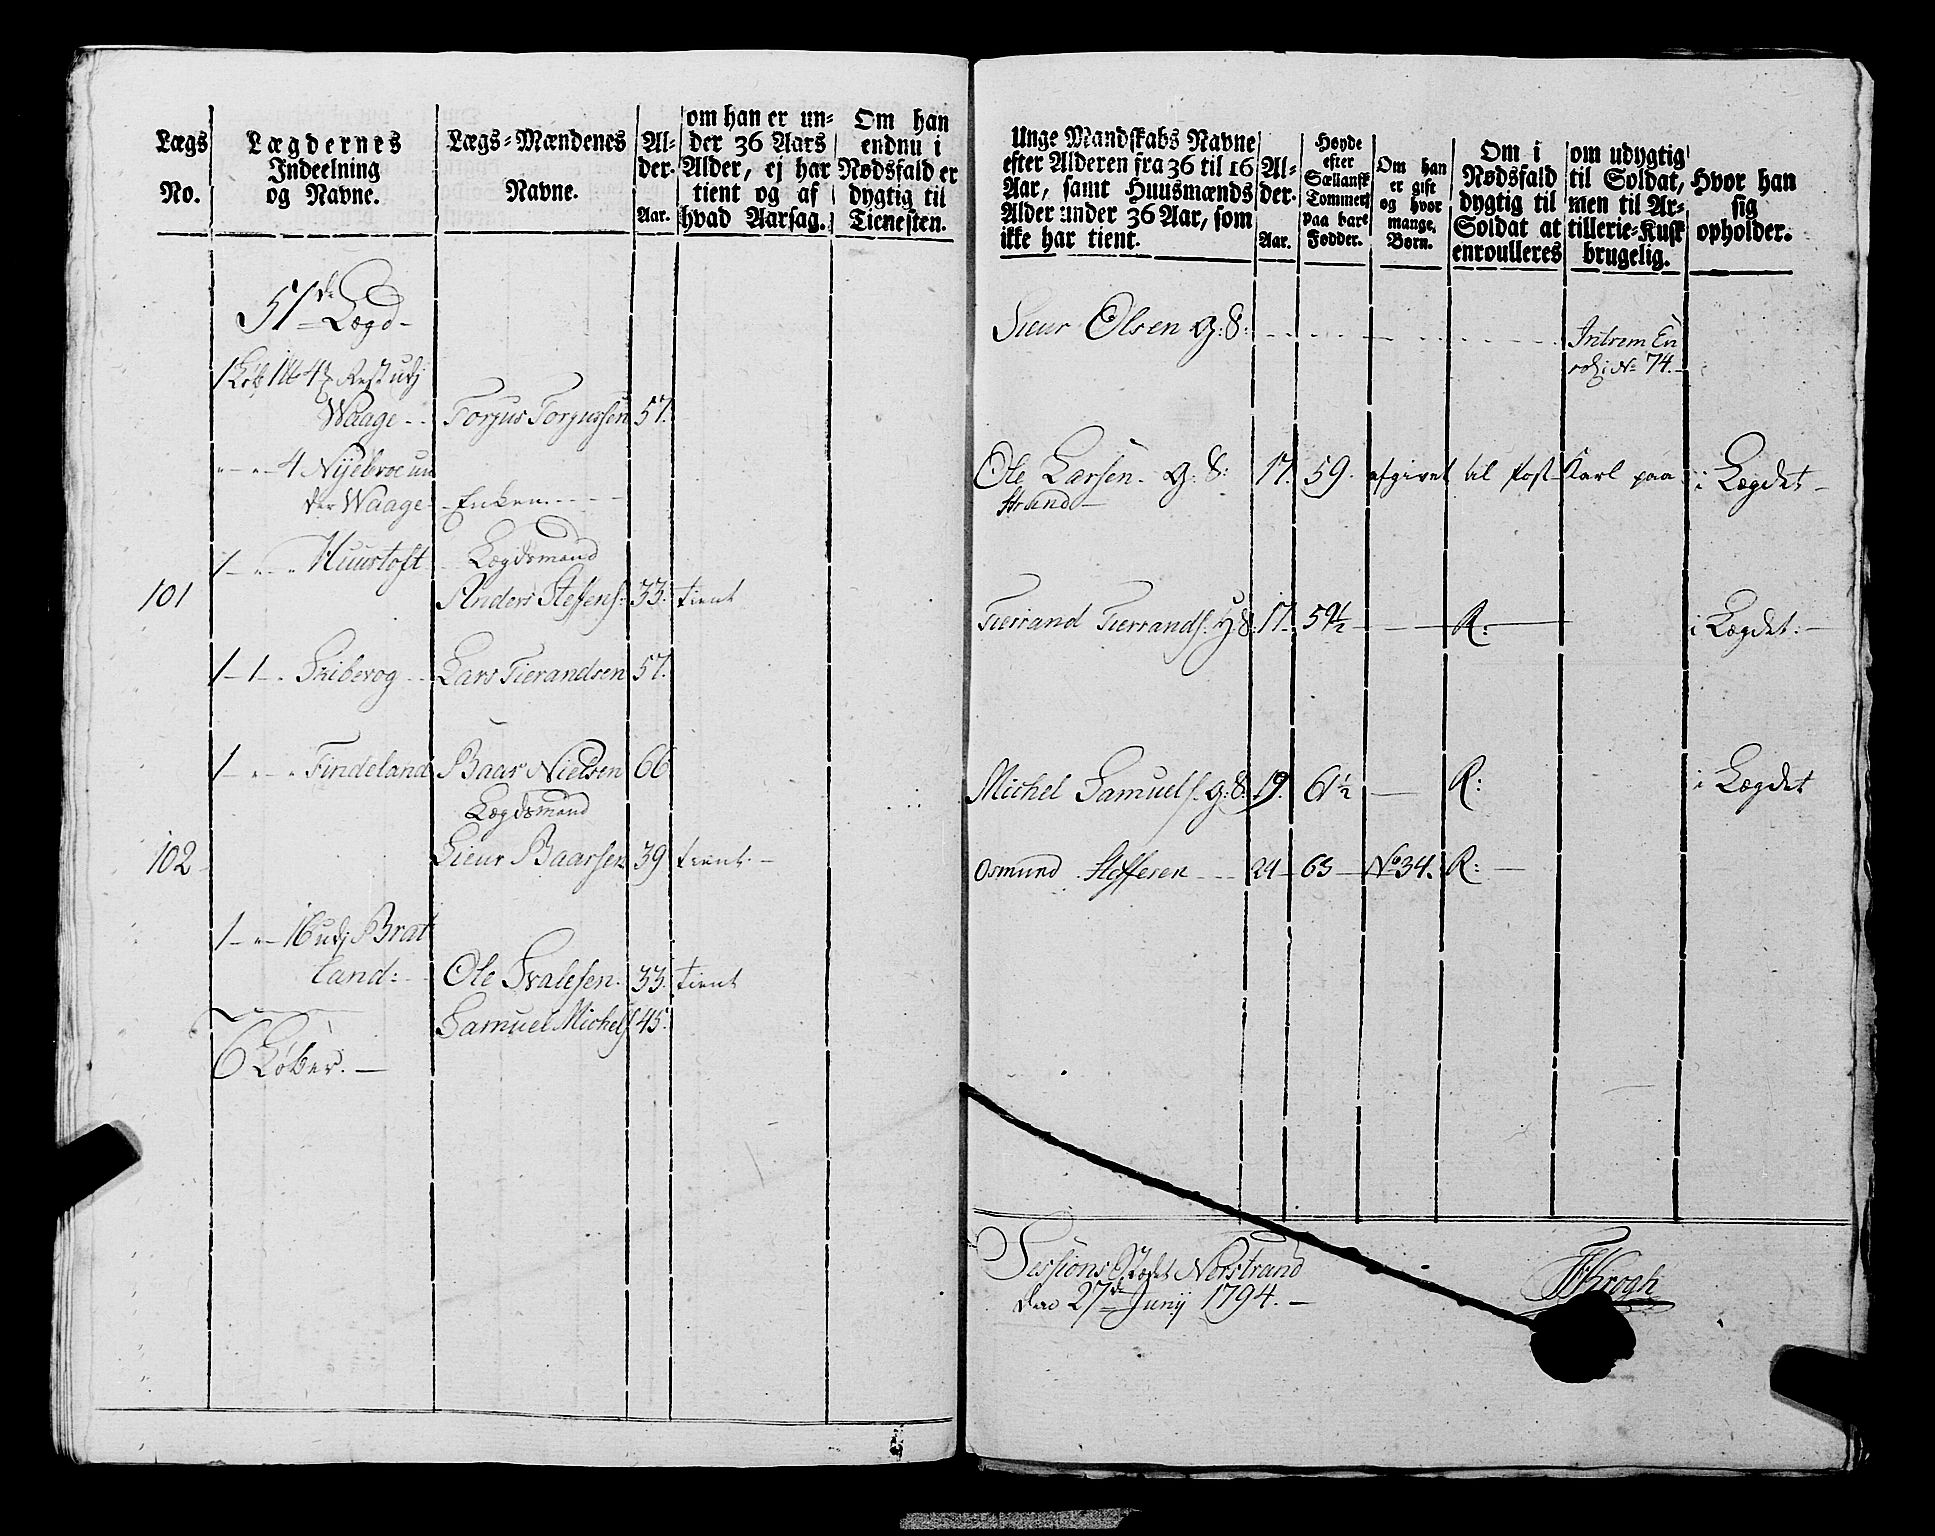 Lægs
No.
Lægdernes
Indeelning
og Navne.
Lægs=Mændenes
Navne.
Al-
der.
Aar.
om han er un-
der 36 Aars
Alder, ej har
tient og af
hvad Aarsag.
Om han
endnu i
Nødsfald er
dygtig til
Tienesten.
51de Lægd
Rest udj
Waage Torjus Torjussen 57.
4 Nyebroe un
der Waage Enken
1 Huurtoft Lægdsmand
101 Anders Steffens: 33. tient
1 1 Skiberog Lars Tierandsen 57.
1 Findeland Baar Nielsen 66
Lægdsmand
102 Sieur Baarsen 39 tient
1 16 udj Brat
land: Ole Svalesen 33. tient
Samuel Michels. 45.
6 Løber.
Unge Mandskabs Navne
efter Alderen fra 36 til 16
Aar, samt Huusmænds
Alder under 36 Aar, som
ikke har tient.
Al-
der.
Aar.
Høyde
efter
Sællansk
Tommer
paa bare
Fødder.
Om han
er gift
og hvor
mange
Børn.
Om i
Nødsfald
dygtig til
Soldat at
enroulleres
om udygtig
til Soldat,
men til Ar-
tillerie=Kusk
brugelig.
Hvor han
sig
opholder.
Sieur Olsen G: S: Intrem En
No 74.
Ole Larsen G: S: 17. 59. afgivet til Post Karl paa i Lægdet
Strand
Tierrand Tierrands. H: S: 17. 59½ R: i Lægdet.
Michel Samuels. G: S: 19. 61½ R: i Lægdet
Osmund Stofferen 24 63 No 34. R:
Sessions Nerstrand
den 27de Junij 1794.
FKrogh